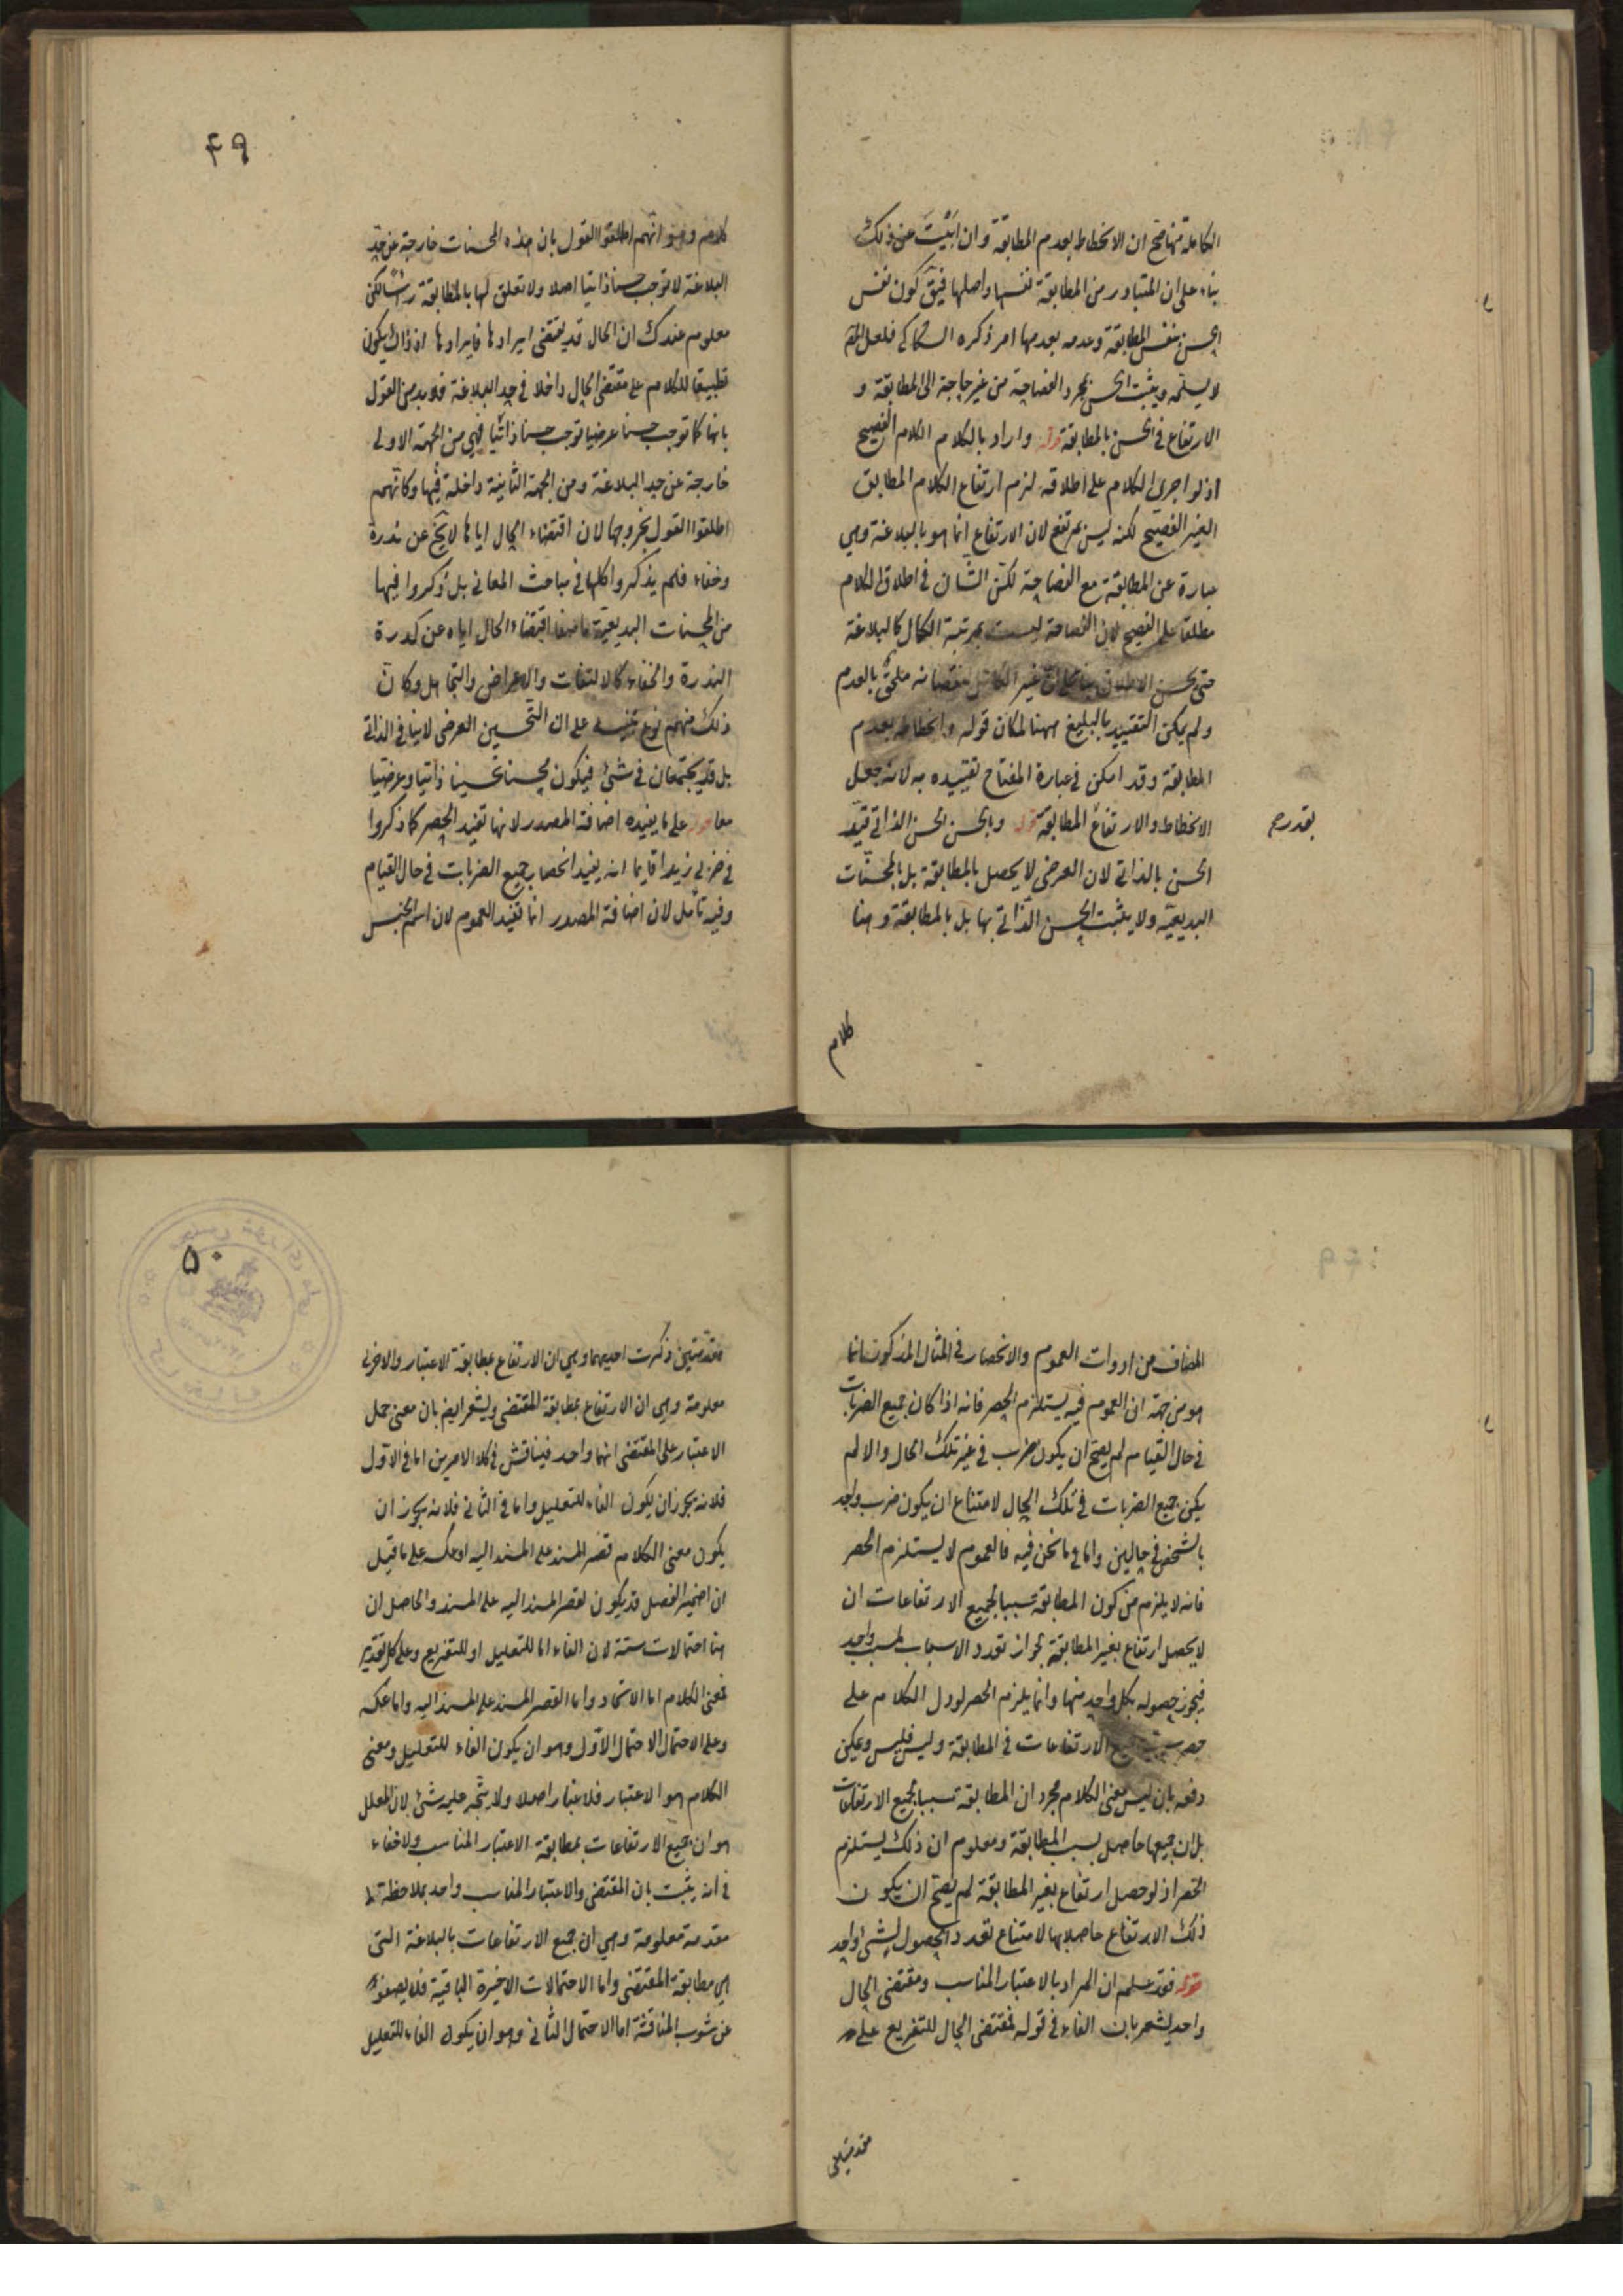 الكاملة فها صح ان الانحطاط بعدم المطابقة وان ابيت عن ذلك
بناء على ان المتبادر من المطابقة نفسها واصلها فيق كون نفس
الحسن بنفس المطابقة وعدمه بعدمها امر ذكره السكاكي فلعل المص
لا يسلمه ويثبت الحسن بمجرد الفصاحة من غير حاجة الى المطابقة و
الارتفاع في الحسن بالمطابقة قوله واراد بالكلام الكلام الفصيح
اذ لو اجرى الكلام على اطلاقه لزم ارتفاع الكلام المطابق
الغير الفصيح لكنه ليس بمرتفع لان الارتفاع انما هو بالبلاغة وهي
عبارة عن المطابقة مع الفصاحة لكن الشان في اطلاق الكلام
مطلقا على الفصيح لان الفصاحة ليست بمرتبة الكمال كالبلاغة
حتى يحسن الاطلاق بناء على ان غير الكامل لنقصانه ملحق بالعدم
ولم يمكن التقييد بالبليغ ههنا لمكان قوله وانحطاطه بعدم
المطابقة وقد امكن في عبارة المفتاح تقييده به لانه جعل
الانحطاط والارتفاع المطابقة قوله وبالحسن الحسن الذاتي قيد
بقدر صح
الحسن بالذاتي لان العرضي لا يحصل بالمطابقة بل بالمحسنات
البديعية ولا يثبت الحسن الذاتي بها بل بالمطابقة وهنا
كلام
۴۹
كلام وهو انهم اطلقوا القول بان هذه المحسنات خارجة عن حد
البلاغة لا توجب حسنا ذاتيا اصلا ولا تعلق لها بالمطابقة راسا لكن
معلوم عندك ان الحال قد يقتضى ايرادها فايرادها اذ ذاك يكون
تطبيقا للكلام على مقتضى الحال داخلا في حد البلاغة فلا بد من القول
بانها كما توجب حسنا عرضيا توجب حسنا ذاتيا فهي من الجهة الاولى
خارجة عن حد البلاغة ومن الجهة الثانية داخلة فيها وكانهم
اطلقوا القول بخروجها لان اقتضاء الحال اياها لا يخ عن ندرة
وخفاء فلم يذكروا كلها في مباحث المعاني بل ذكروا فيها
من المحسنات البديعية ما صفا اقتضاء الحال اياه عن كدرة
الندرة والخفاء كالالتفات والاعراض والتجاهل وكان
ذلك منهم نوع تنبيه على ان التحسين العرضي لا ينافي الذاتي
بل قد يجتمعان في شئ فيكون محسنا تحسينا ذاتيا وعرضيا
معا قوله على ما يفيده اضافة المصدر لانها تفيد الحصر كما ذكروا
في ضربي زيدا قايما انه يفيد انحصار جميع الضربات في حال القيام
وفيه تامل لان اضافة المصدر انما تفيد العموم لان اسم الجنس
المضاف من ادوات العموم والانحصار في المثال المذكور انما
هو من جهة ان العموم فيه يستلزم الحصر فانه اذا كان جميع الضربات
في حال القيام لم يصح ان يكون ضرب في غير تلك الحال والا لم
يكن جميع الضربات في تلك الحال لامتناع ان يكون ضرب واحد
بالشخص في حالين واما في ما نحن فيه فالعموم لا يستلزم الحصر
فانه لا يلزم من كون المطابقة سببا لجميع الارتفاعات ان
لا يحصل ارتفاع بغير المطابقة لجواز تعدد الاسباب لمسبب واحد
فيجوز حصوله بكل واحد منها وانما يلزم الحصر لو دل الكلام على
حصر جميع الارتفاعات في المطابقة وليس فليس ويمكن
دفعه بان ليس معنى الكلام مجرد ان المطابقة سبب لجميع الارتفاعات
بل ان جميعها حاصل بسبب المطابقة ومعلوم ان ذلك يستلزم
الحصر اذ لو حصل ارتفاع بغير المطابقة لم يصح ان يكون
ذلك الارتفاع حاصلا بها لامتناع تعدد الحصول لشئ واحد
قوله فقد علم ان المراد بالاعتبار المناسب ومقتضى الحال
واحد يشعر بان الفاء في قوله فمقتضى الحال للتفريع على
مقدمتين
۵۰
مقدمتين ذكرت احديهما وهي ان الارتفاع بمطابقة الاعتبار والاخرى
معلومة وهي ان الارتفاع بمطابقة المقتضى ويشعر ايضا بان معنى حمل
الاعتبار على المقتضى انهما واحد فيناقش في كلا الامرين اما في الاول
فلانه يجوز ان يكون الفاء للتعليل واما في الثاني فلانه يجوز ان
يكون معنى الكلام قصر المسند على المسند اليه او عكسه على ما قيل
ان ضمير الفصل قد يكون لقصر المسند اليه على المسند والحاصل ان
هنا احتمالات ستة لان الفاء اما للتعليل او للتفريع وعلى كل تقدير
فمعنى الكلام اما الاتحاد واما القصر المسند على المسند اليه واما عكسه
وعلى الاحتمال الاحتمال الاول وهو ان يكون الفاء للتعليل ومعنى
الكلام هو الاعتبار فلا غبار اصلا ولا يتجه عليه شئ لان المعلل
هو ان جميع الارتفاعات بمطابقة الاعتبار المناسب ولا خفاء
في انه يثبت بان المقتضى والاعتبار المناسب واحد بملاحظة
مقدمة معلومة وهي ان جميع الارتفاعات بالبلاغة التى
هي مطابقة المقتضى واما الاحتمالات الاخيرة الباقية فلا يصفو
عن شوب المناقشة اما الاحتمال الثاني وهو ان يكون الفاء للتعليل